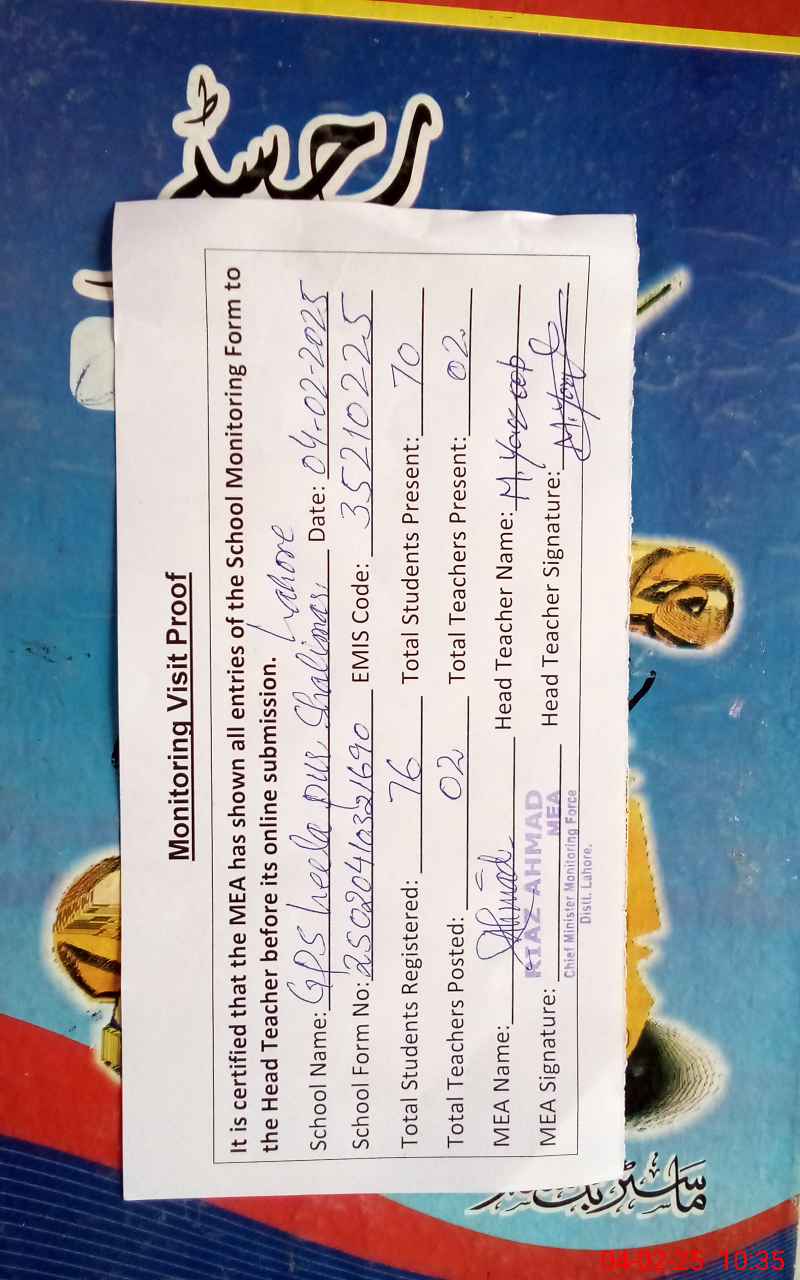 رجسٹر
Monitoring Visit Proof
It is certified that the MEA has shown all entries of the School Monitoring Form to
the Head Teacher before its online submission.
School Name: GPS heela pur Shalimar, Lahore Date: 04-02-2025
School Form No: 2502041032690 EMIS Code: 35210225
Total Students Registered: 76 Total Students Present: 70
Total Teachers Posted: 02 Total Teachers Present: 02
MEA Name: Head Teacher Name: M. Yaqoob
RIAZ AHMAD
MEA
MEA Signature: Head Teacher Signature:
Chief Minister Monitoring Force
Distt. Lahore.
ماسٹر
04-02-25 10:35